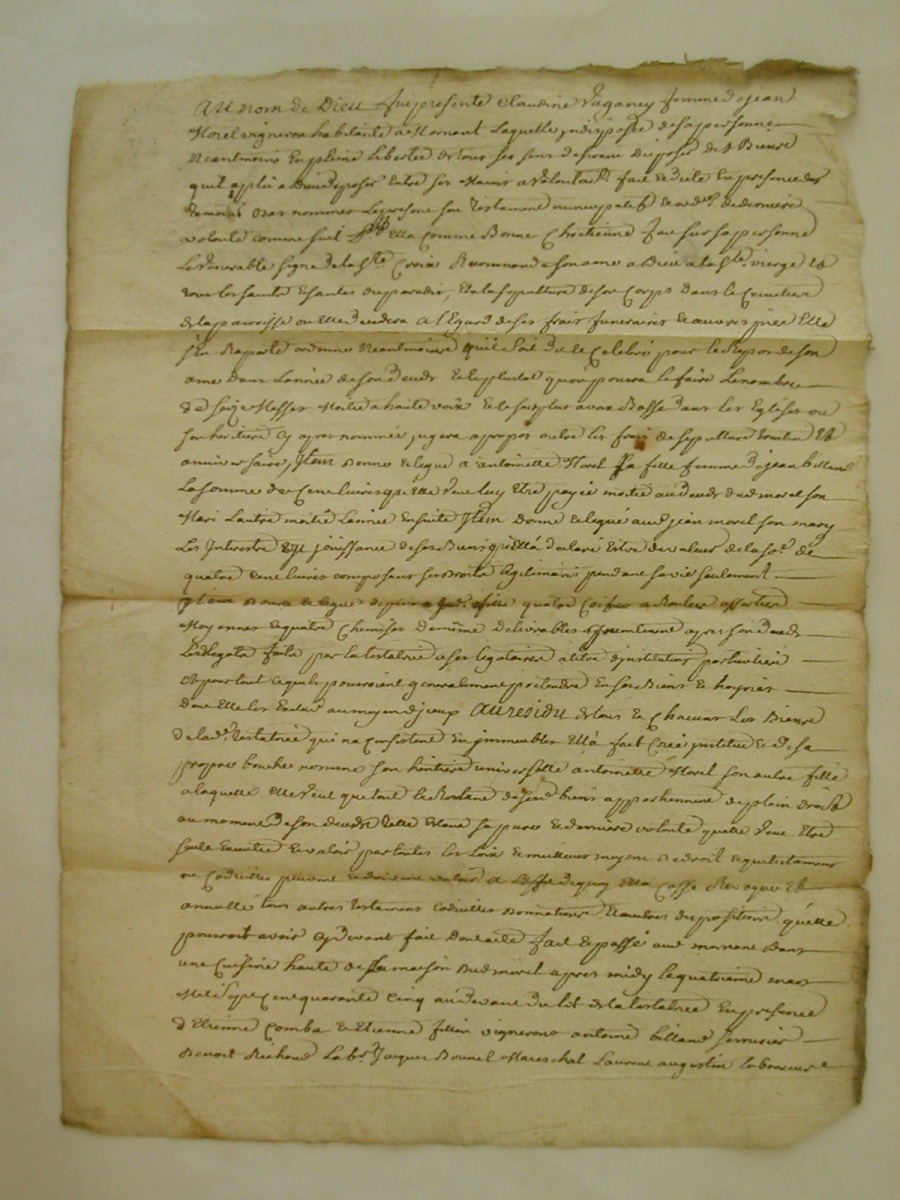 AU nom de Dieu fut presente Claudine Vaganey femme de jean
Morel vigneron habitante a Mornant Laquelle indisposée de sa personne
Neantmoins En pleine Liberté de tous ses sens desirant disposer des Biens
quil a plû a Dieu deposer Entre ses Mains a volontairt fait et dicté En presence des
temoins Bas nommés le present son testament nuncupatif et ord.e de derniere
volonté comme suit Ella comme Bonne Chretienne fait sur sa personne
Le Venerable signe de la Ste Croix Recommandé son ame a Dieu a la Ste vierge et
tous les saints et saintes du paradis, et la sepulture de son Corps dans le Cimetiere
de la parroisse ou elle decedera A l'Egard de ses frais funeraires et œuvres pies Elle
s'En Raporte ordonne Neantmoins quil soit dit et Celebré pour le Repos de son
ame dans Lannée de son deceds et le plustot que on pourra le faire Le nombre
de seize Messes Moitié a haute voix et le surplus a voix Basse dans les Eglises ou
son heritiere Cy apres nommée jugera a propos outre les frais de sepulture et
anniversaire, Item donne et legue a antoinette Morel sa fille femme de jean billand
La somme de Cent livres quelle veut luy Etre payée moitié au deceds dud morel son
Mari Lautre moitié Lannée Ensuite Item donne et legue aud jean morel son mary
Les Interests et jouissance de ses Biens quella declaré Etre de valeur de la so.e de
quatre cent livres composant ses droits legitimaires pendant sa vie seulement
Item donne et legue de plus a lad.e fille quatre Coiffes
Moyennes et quatre Chemises de même delivrables apres son deceds
Lesd legats faits par la testatrice a ses legataires a titre d'institution particuliere
Et pour tout ce quils pourroient generalement pretendre En ses Biens et hoyries
dont Elle les Exclud au moyen d'iceux AU RESIDU de tous et Chacuns Les Biens
de lad.e testatrice qui ne Consistent En immeubles Ella fait Créé institué et de sa
propre bouche nommé son heritiere universelle antoinette Morel son autre fille
a laquelle elle veut que tout le Restant de ses biens appartiennent de plein droit
au moment de son deceds telle Etant sa pure et derniere volonté quelle veut Etre
seule Executée et valoir par toutes les Loix et meilleurs moyens de droit et que testaments
ou Codicilles peuvent valoir A Leffet de quoy Ella Casse Revoque et
annulle tous autres testaments codicilles donnations et autres dispositions quelle
pourroit avoir Cy devant fait dont acte fait et passé aud mornant dans
une Cuisine haute de la maison dud morel apres midy le quatrieme mars
Mil sept Cent quarante Cinq au devant du lit de la testatrice En presence
d'Etienne Comba et Etienne fillin vignerons antoine billand serrurier
Benoit Richoud Lab.r Jacques Bonnel Mareschal Laurent augustin laboureur